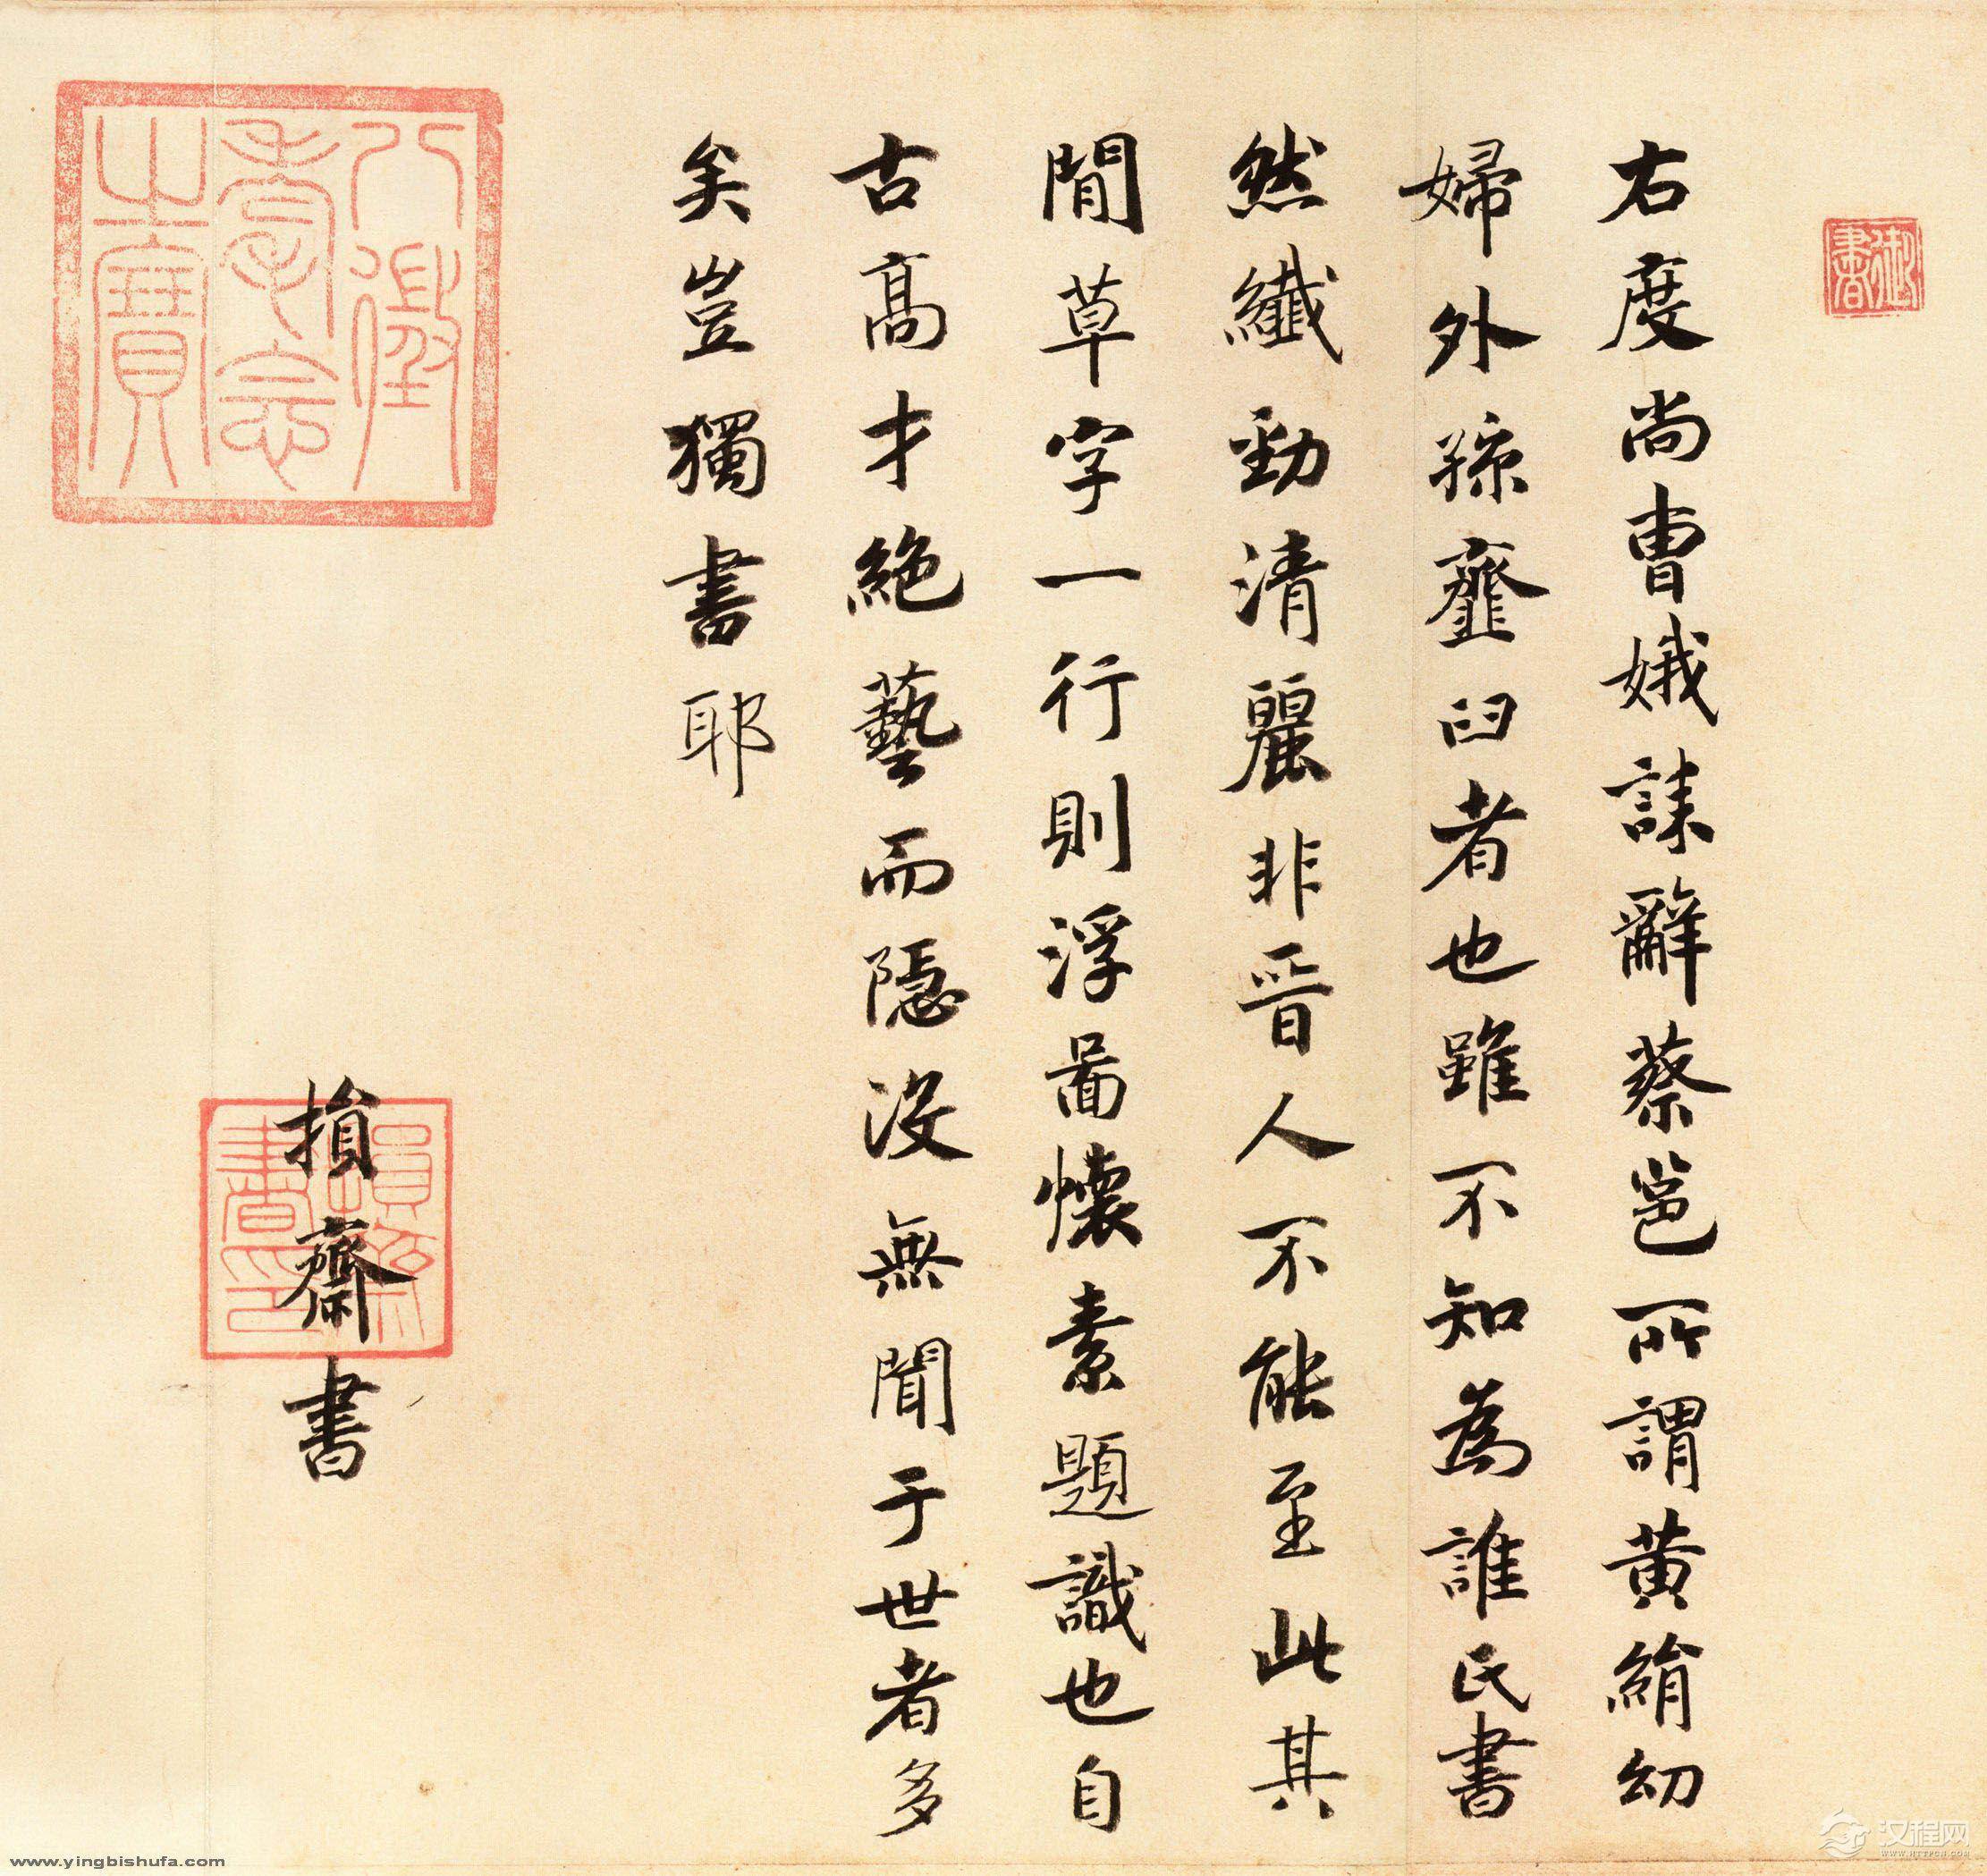 御書
右度尚曹娥誄辭蔡邕所謂黃絹幼
婦外孫齏臼者也雖不知為誰氏書
然纖勁清麗非晉人不能至此其
間草字一行則浮圖懷素題識也自
古高才絕藝而隱沒無聞于世者多
矣豈獨書耶
損齋書
損齋書印
八徵耄念之寶
www.yingbishufa.com
汉程网
WWW.HTTPCN.COM